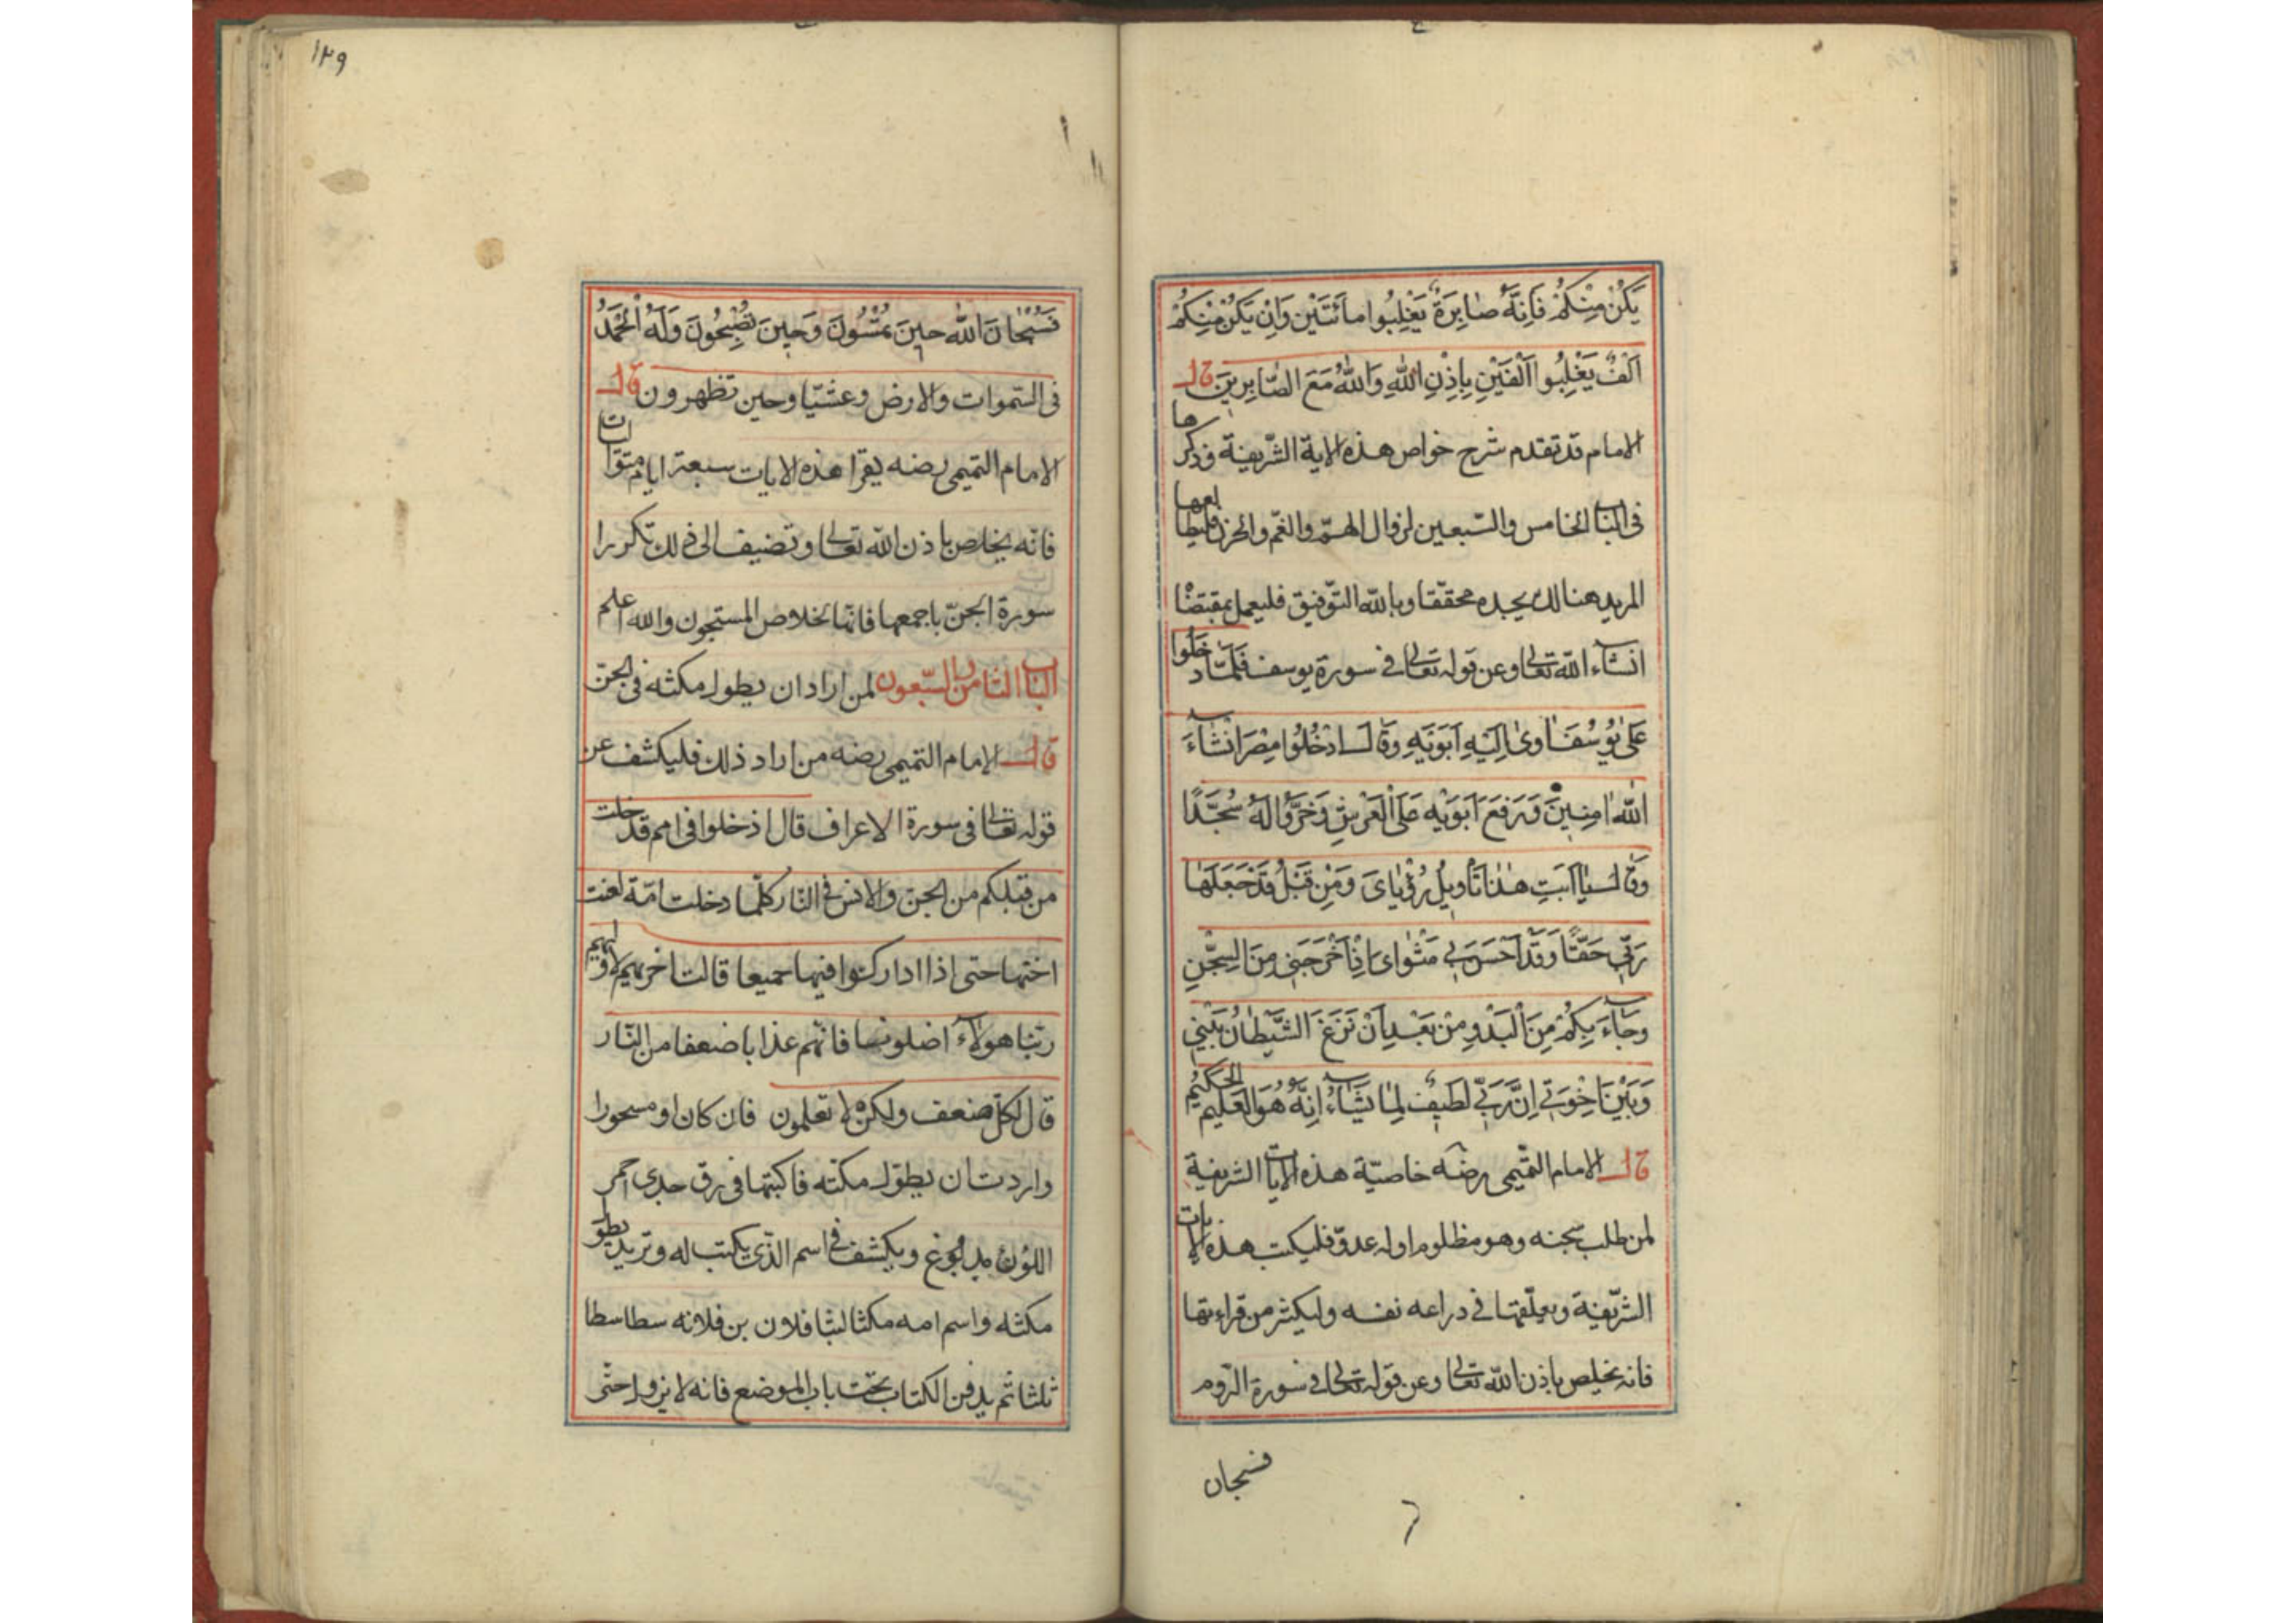 يَكُنْ مِنْكُمْ فَاِنَّهُ صٰابِرَةٌ يَغْلِبُوا مِائَتَيْنِ وَاِنْ يَكُنْ مِنْكُمْ
اَلْفٌ يَغْلِبُوا اَلْفَيْنِ بِاِذْنِ اللهِ وَاللهُ مَعَ الصّٰابِرِينَ قال
الامام قد تقدم شرح خواص هذه الاية الشّريفة وذكرها
فى الباب الخامس والسّبعين لزوال الهمّ والغمّ والحزن فليطالعها
المريد هنالك يجده محققا وبالله التوفيق فليعمل بمقتضا
انشاء الله تعالى وعن قوله تعالى فى سورة يوسف فَلَمّا دخَلُوا
عَلىٰ يُوسُفَ اٰوىٰ اِلَيْهِ اَبَوَيْهِ وَقٰالَ ادْخُلُوا مِصْرَ انْشٰاءَ
اللهُ اٰمِنِينَ وَرَفَعَ اَبَوَيْهِ عَلَى الْعَرْشِ وَخَرُّوا لَهُ سُجَّدًا
وَقٰالَ يٰا اَبَتِ هٰذٰا تَأْوِيلُ رُؤْيٰاىَ وَمِنْ قَبْلُ قَدْ جَعَلَهٰا
رَبِّى حَقًّا وَقَدْ اَحْسَنَ بى مَثْوٰاىَ اِذْ اَخْرَجَنِى مِنَ السِّجْنِ
وَجٰاءَ بِكُمْ مِنَ الْبَدْوِ مِنْ بَعْدِ اَنْ نَزَغَ الشَّيْطٰانُ بَيْنِى
وَبَيْنَ اِخْوَتِى اِنَّ رَبِّى لَطِيفٌ لِمٰا يَشٰاءُ اِنَّهُ هُوَ الْعَلِيمُ الحَكِيمُ
قال الامام التميمى رضه خاصيّة هذه الايات الشريفة
لمن طلب سجنه وهو مظلوم او له عدوّ فليكتب هذه الايات
الشّريفة ويعلّقها فى دراعه نفسه وليكثر من قراءتها
فانه يخلص باذن الله تعالى وعن قوله تعالى فى سورة الرّوم
فسبحان
١٢٩
فَسُبْحٰانَ اللهِ حينَ تُمْسُونَ وَحِينَ تُصْبِحُونَ وَلَهُ الْحَمْدُ
فى السّموات والارض وعشيّا وحين تظهرون قال
الامام التميمى رضه يقرا هذه الايات سبعة ايام متواليات
فانّه يخلص باذن الله تعالى وتضيف الى ذلك تكررا
سورة الجنّ باجمعها فانّها لخلاص المسجون والله اعلم
الباب الثامن والسّبعون لمن اراد ان يطول مكثه فى الجنّ
قال الامام التميمى رضه من اراد ذلك فليكشف عن
قوله تعالى فى سورة الاعراف قال ادخلوا فى امم قد خلت
من قبلكم من الجن والانس فى النّار كلّما دخلت امّة لعنت
اختها حتى اذا اداركوا فيها جميعا قالت اخريهم لاوليهم
ربّنا هولآء اضلونا فاتهم عذابا ضعفا من النّار
قال لكلّ ضعف ولكن لا تعلمون فان كان او مسحورا
واردت ان يطول مكثه فاكتبها فى رق جدى احمر
اللّون ويكشف فى اسم الذّى يكتب له وتريد يطول
مكثه واسم امه مكثا لبثا فلان بن فلانه سطا سطا
ثلثا ثم يدفن الكتاب تحت باب الموضع فانه لا يزول حتّى